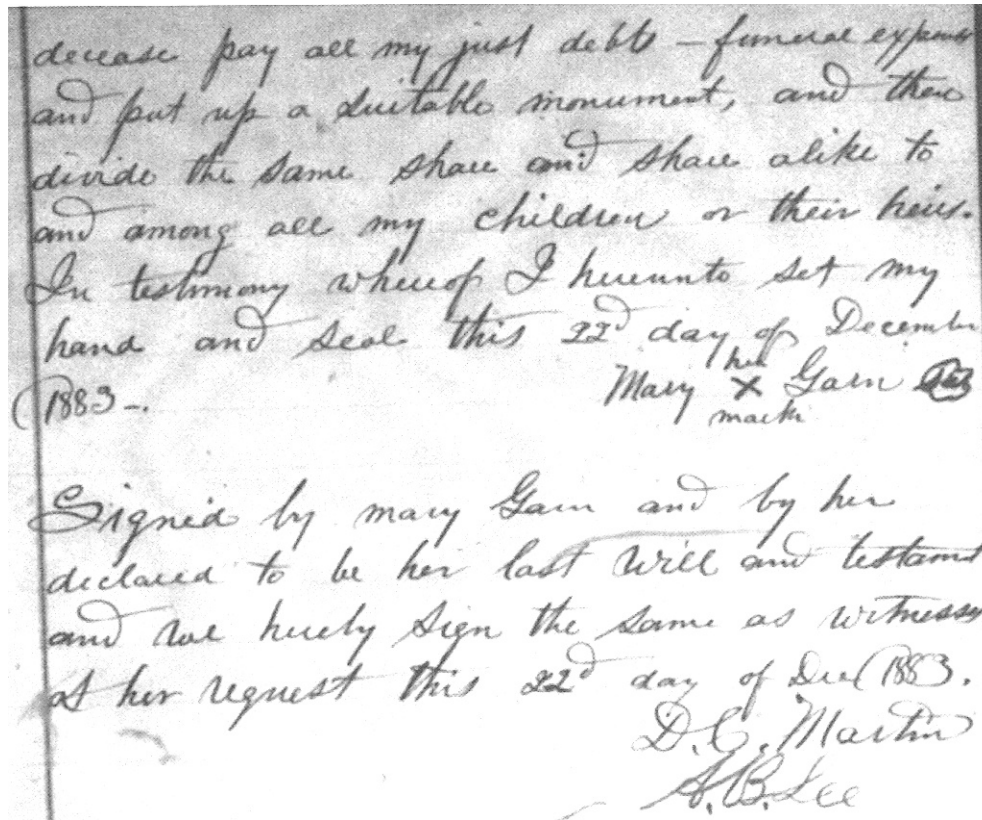 decease pay all my just debts – funeral expenses
and put up a suitable monument, and then
divide the same share and share alike to
and among all my children or their heirs.
In testimony whereof I hereunto set my
hand and seal this 22d day of December
1883 –.
her
Mary X Garn
mark
Signed by mary Garn and by her
declared to be her last Will and testament
and we hereby sign the same as witnesses
at her request this 22d day of Dec 1883.
D. C. Martin
A. B. Lee